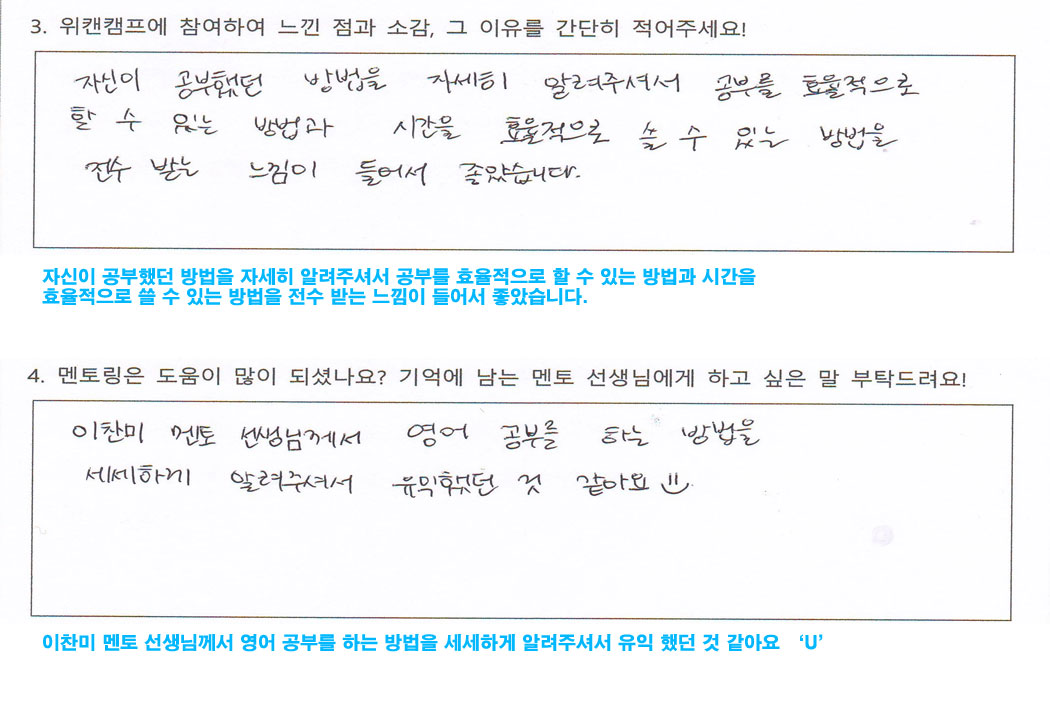 3. 위캔캠프에 참여하여 느낀 점과 소감, 그 이유를 간단히 적어주세요!
자신이 공부했던 방법을 자세히 알려주셔서 공부를 효율적으로
할 수 있는 방법과 시간을 효율적으로 쓸 수 있는 방법을
전수 받는 느낌이 들어서 좋았습니다.
자신이 공부했던 방법을 자세히 알려주셔서 공부를 효율적으로 할 수 있는 방법과 시간을
효율적으로 쓸 수 있는 방법을 전수 받는 느낌이 들어서 좋았습니다.
4. 멘토링은 도움이 많이 되셨나요? 기억에 남는 멘토 선생님에게 하고 싶은 말 부탁드려요!
이찬미 멘토 선생님께서 영어 공부를 하는 방법을
세세하게 알려주셔서 유익했던 것 같아요
이찬미 멘토 선생님께서 영어 공부를 하는 방법을 세세하게 알려주셔서 유익 했던 것 같아요 ‘U’